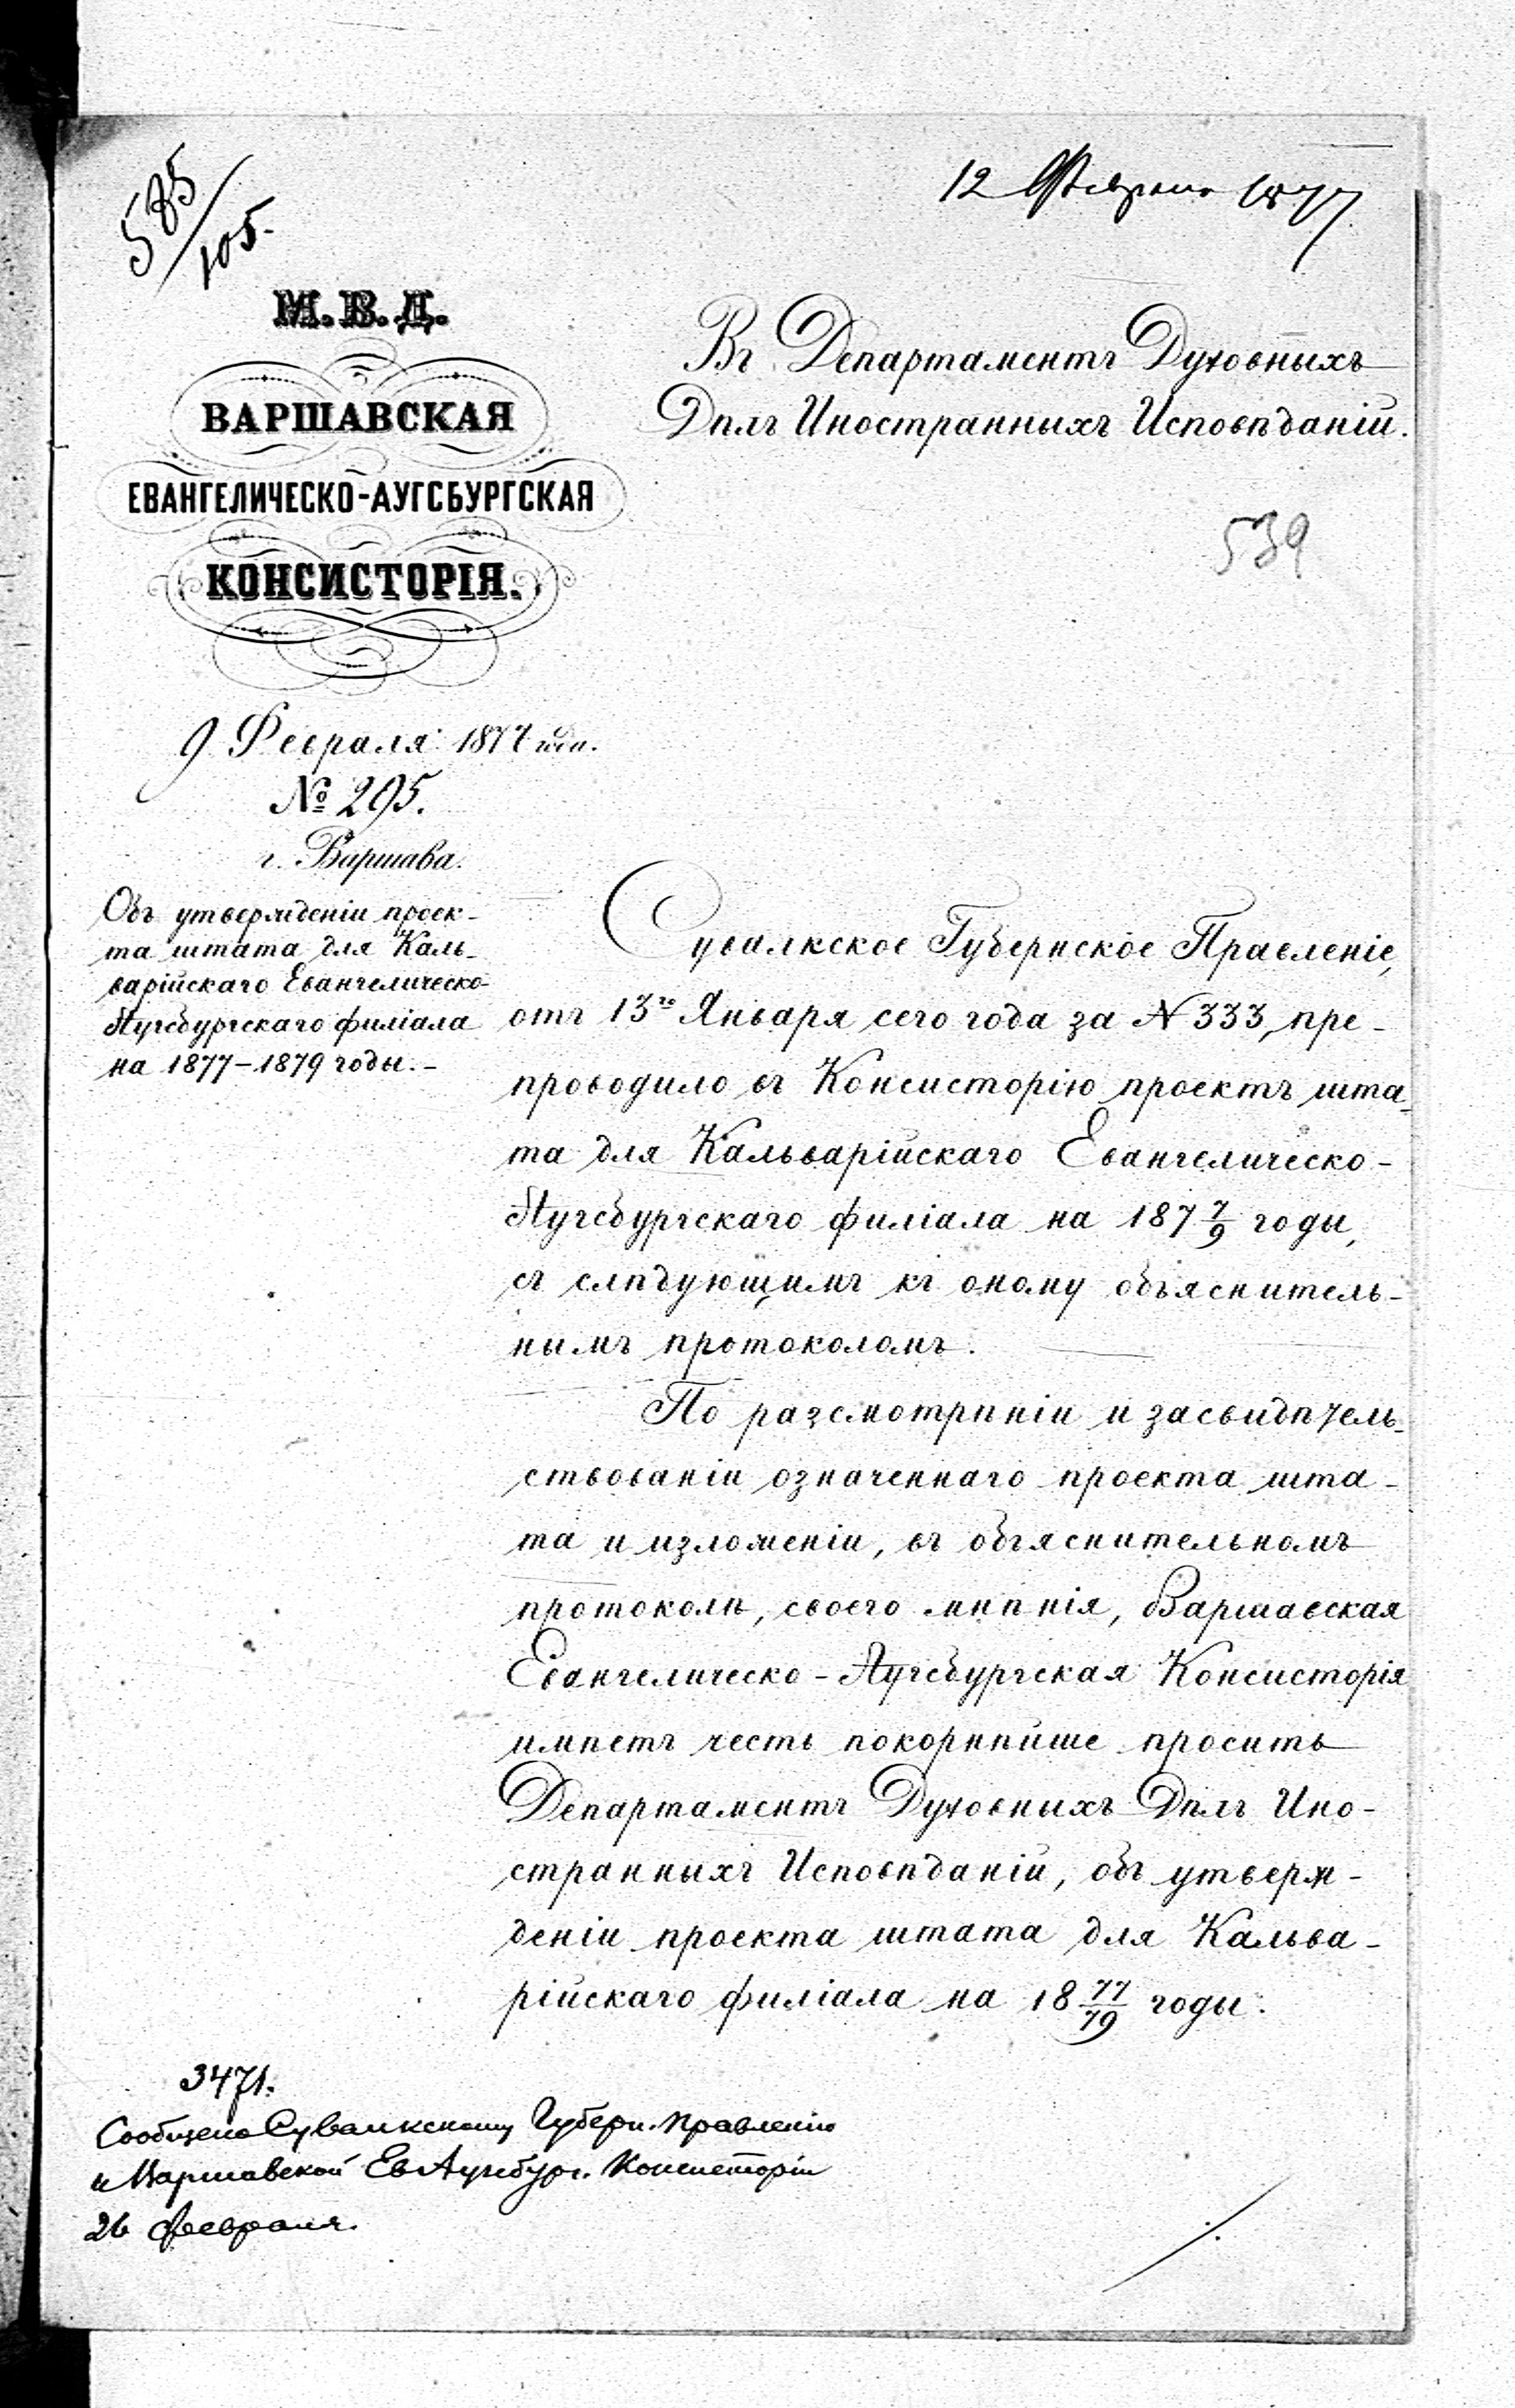 585/105.
12 Февраля 1877
М. В. Д.
ВАРШАВСКАЯ
ЕВАНГЕЛИЧЕСКО-АУГСБУРГСКАЯ
КОНСИСТОРІЯ.
9 Февраля 1877 года.
№ 295.
г. Варшава.
Объ утвержденіи проек-
та штата для Каль-
варійскаго Евангелическо-
Аугсбургскаго филіала
на 1877-1879 годы.-
Въ Департаментъ Духовныхъ
Дѣлъ Иностранныхъ Исповѣданій.
539
Сувалкское Губернское Правленіе,
отъ 13го Января сего года за № 333, пре-
проводило въ Консисторію проектъ шта-
та для Кальварійскаго Евангелическо-
Аугсбургскаго филіала на 187 7/9 годы,
съ слѣдующимъ къ оному объяснитель-
нымъ протоколомъ.
По разсмотрѣніи и засвидѣтель-
ствованіи означеннаго проекта шта-
та и изложеніи, въ объяснительномъ
протоколѣ, своего мнѣнія, Варшавская
Евангелическо-Аугсбургская Консисторія
имѣетъ честь покорнѣйше просить
Департаментъ Духовныхъ Дѣлъ Ино-
странныхъ Исповѣданій, объ утверж-
деніи проекта штата для Кальва-
рійскаго филіала на 18 77/79 годы.
3471.
Сообщено Сувалкскому Губерн. Правленію
и Варшавской Ев Аугсбург. Консисторіи
26 февраля.